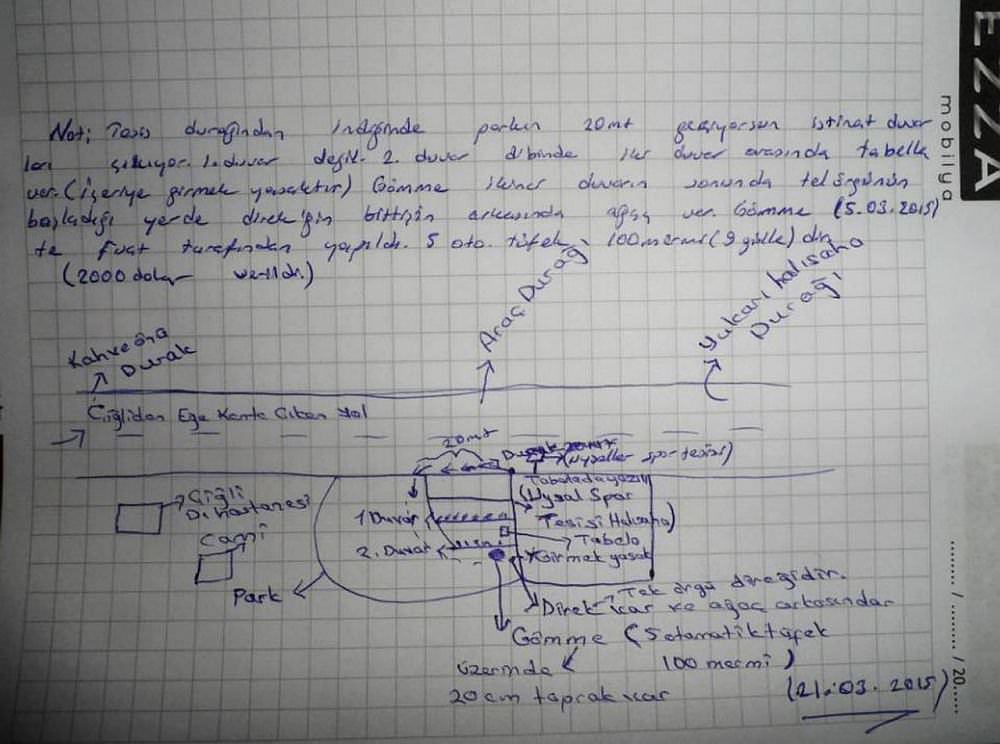 EZZA
mobilya
Not; Tesis durağından indğimde parkın 20mt geçiyorsun istinat duvar
ları çıkıyor. 1. duvar değil. 2. duvar dibinde iki duvar arasında tabella
var. (içeriye girmek yasaktır) Gömme ikinci duvarın sonunda tel örgünün
başladığı yerde direk'ğin bittiğin arkasında ağaç var. Gömme (5.03.2015)
te fuat tarafından yapıldı. 5 oto. tüfek, 100 mermi (9 gülle) dir
(2000 dolar verildi.)
Kahveönü
Durak
Araç Durağ
Yukarı halısaha
Durağı
Çiğliden Ege Kente Çıkan yol
20mt
Durak
(Uysaller spor tesisi)
Tabeladayazılı
(Uysal Spor
Tesisi Halısaha)
Çiğli
D. hastanesi
Cami
1 Duvar
2. Duvar
Tabela
Girmek yasak
Park
Tek örgü direğidir.
Direk var ve ağaç arkasından
Gömme (5 otomatik tüfek
100 mermi)
üzerinde
20 cm toprak var
(21.03.2015)
......... / ......... / 20......